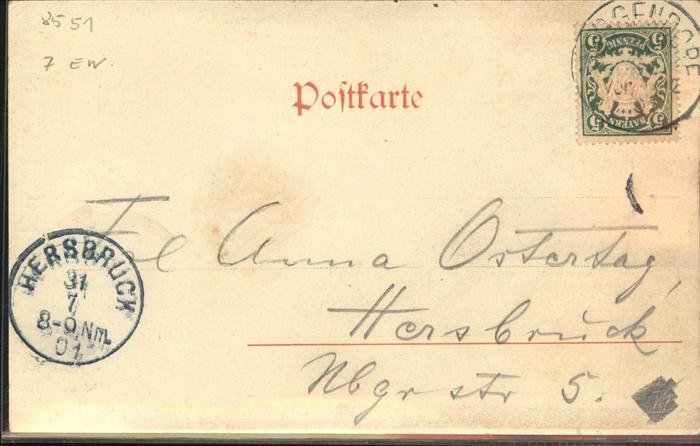 8551
7 EW.
Postkarte
5 PFENNIG 5
5 BAYERN 5
Frl Anna Ostertag,
Hersbruck
Nbgrstr 5.
HERSBRUCK
31
7
8-9 Nm.
01